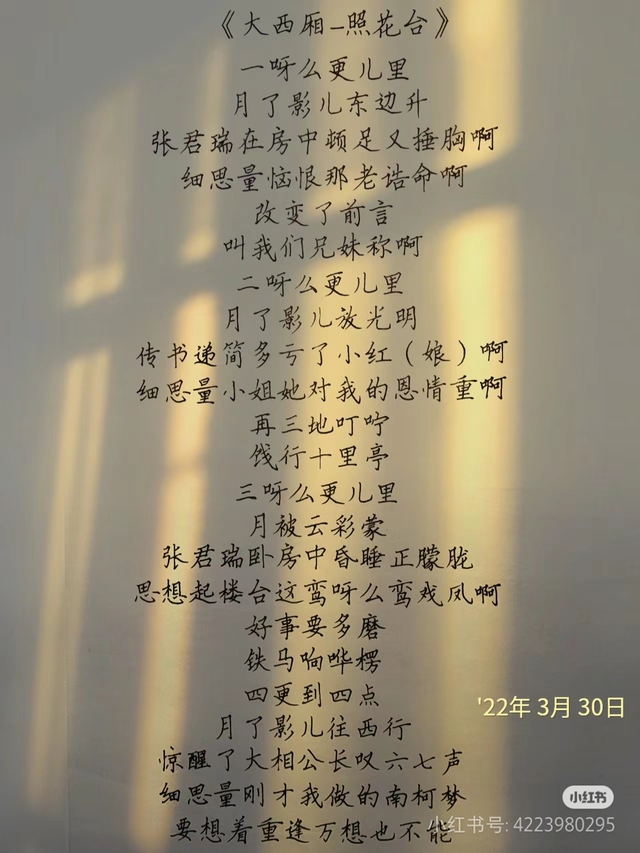 《大西厢–照花台》
一呀么更儿里
月了影儿东边升
张君瑞在房中顿足又捶胸啊
细思量恼恨那老诰命啊
改变了前言
叫我们兄妹称啊
二呀么更儿里
月了影儿放光明
传书递简多亏了小红（娘）啊
细思量小姐她对我的恩情重啊
再三地叮咛
饯行十里亭
三呀么更儿里
月被云彩蒙
张君瑞卧房中昏睡正朦胧
思想起楼台这鸾呀么鸾戏凤啊
好事要多磨
铁马响哗楞
四更到四点
月了影儿往西行
'22年 3月 30日
惊醒了大相公长叹六七声
细思量刚才我做的南柯梦
小红书
要想着重逢万想也不能
小红书号: 4223980295